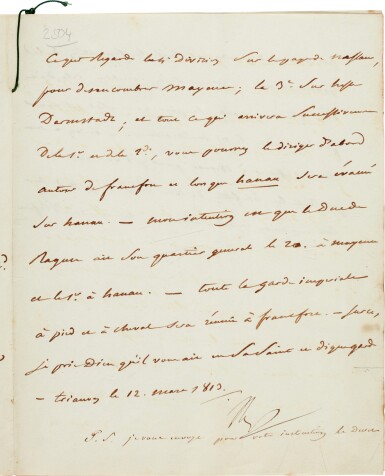 2504
Ce qui regarde la 4e Division sur le pays de nassau,
pour desencombrer mayence; la 3e sur hesse
Darmstadt, et tout ce qui arrivera successivement
de la 1e et de la 2e, vous pouvez le diriger d'abord
autour de francfort et lorsque hanau sera évacué
sur hanau. — mon intention est que le Duc de
Raguse ait son quartier general le 20 à mayence
et le 1er à hanau. — toute la garde imperiale
à pied et à cheval sera réunie à francfort. — sur ce,
je prie Dieu qu'il vous ait en sa Sainte et digne garde
— trianon le 12. mars 1813.
P. S. je vous envoye pour votre